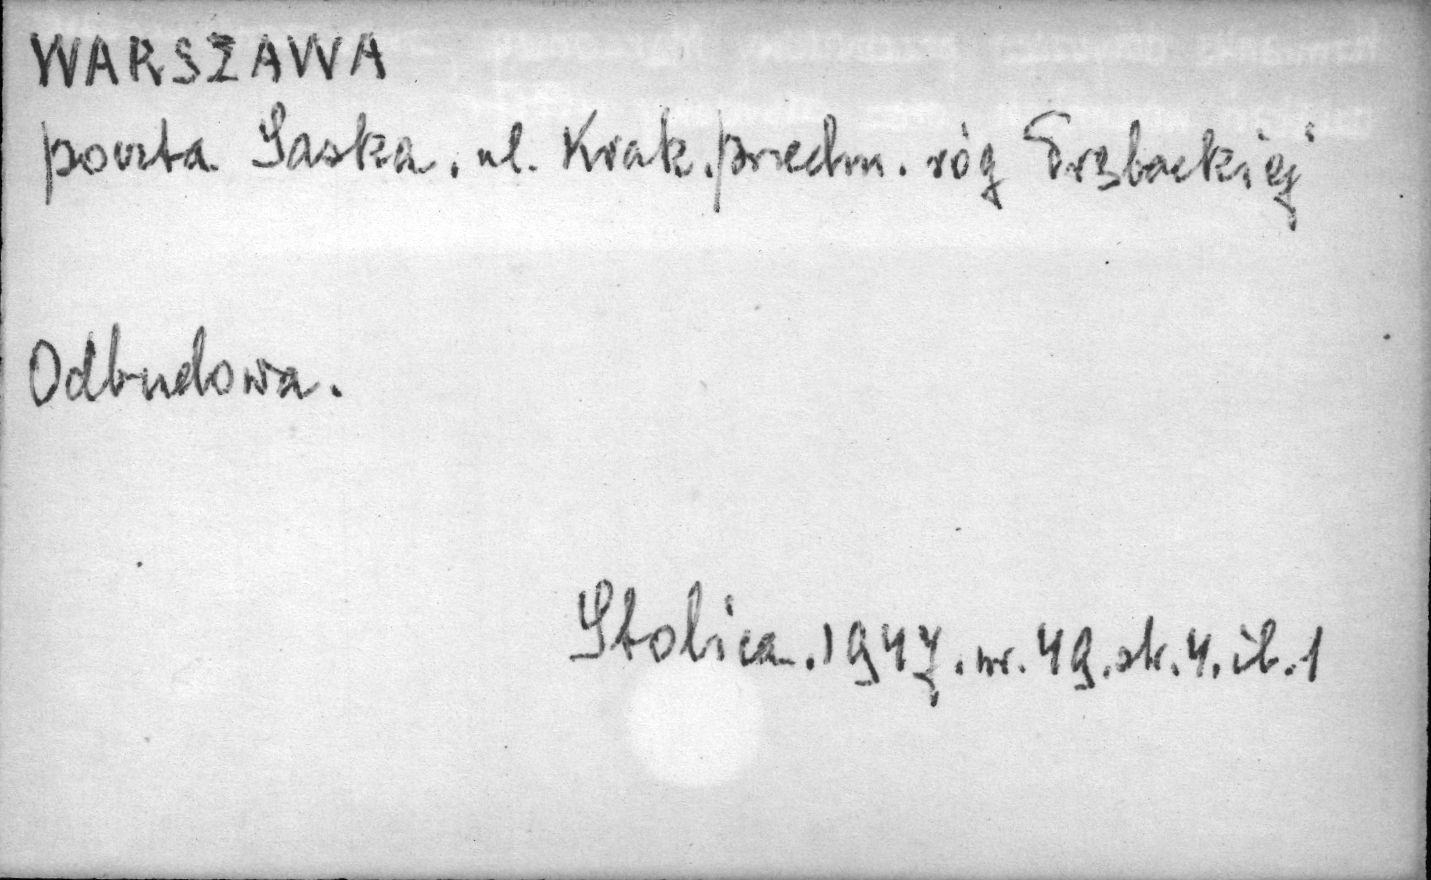 WARSZAWA
poczta Saska. ul. Krak. przedm. róg Trębackiej
Odbudowa.
Stolica. 1947. nr. 49. str. 4. il. 1